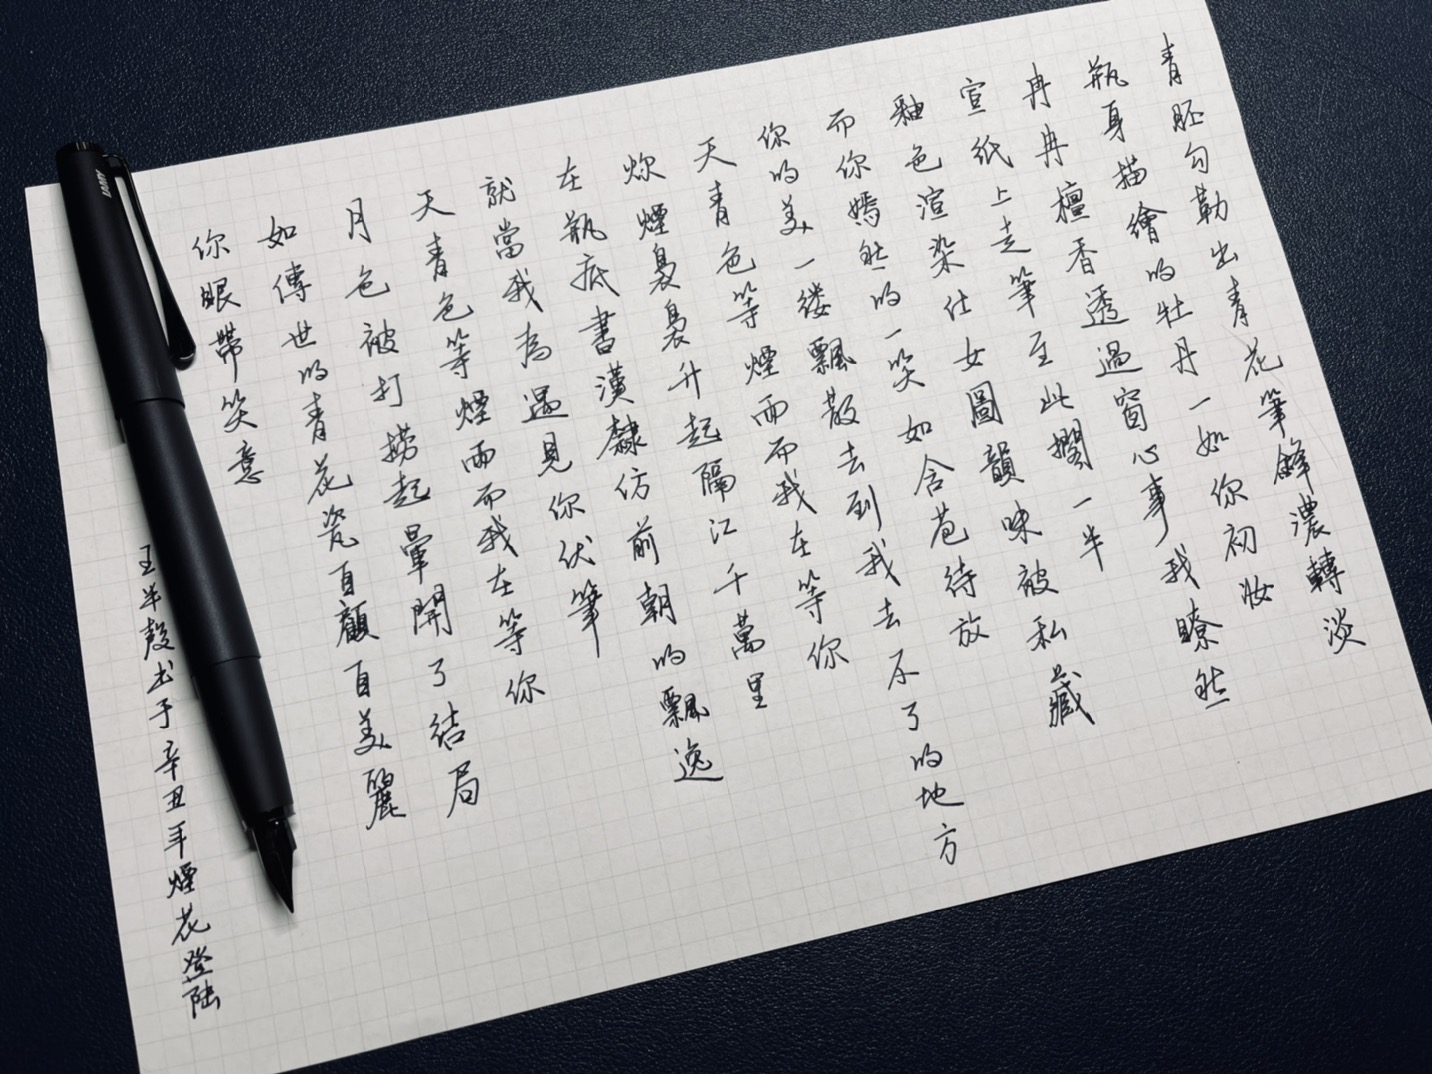 青胚勾勒出青花筆鋒濃轉淡
瓶身描繪的牡丹一如你初妝
冉冉檀香透過窗心事我瞭然
宣紙上走筆至此擱一半
釉色渲染仕女圖韻味被私藏
而你嫣然的一笑如含苞待放
你的美一缕飄散去到我去不了的地方
天青色等煙雨而我在等你
炊煙裊裊升起隔江千萬里
在瓶底書漢隸仿前朝的飄逸
就當我為遇見你伏筆
天青色等煙雨而我在等你
月色被打撈起暈開了結局
如傳世的青花瓷自顧自美麗
你眼帶笑意
王半殼书于辛丑年煙花登陆
LAMY